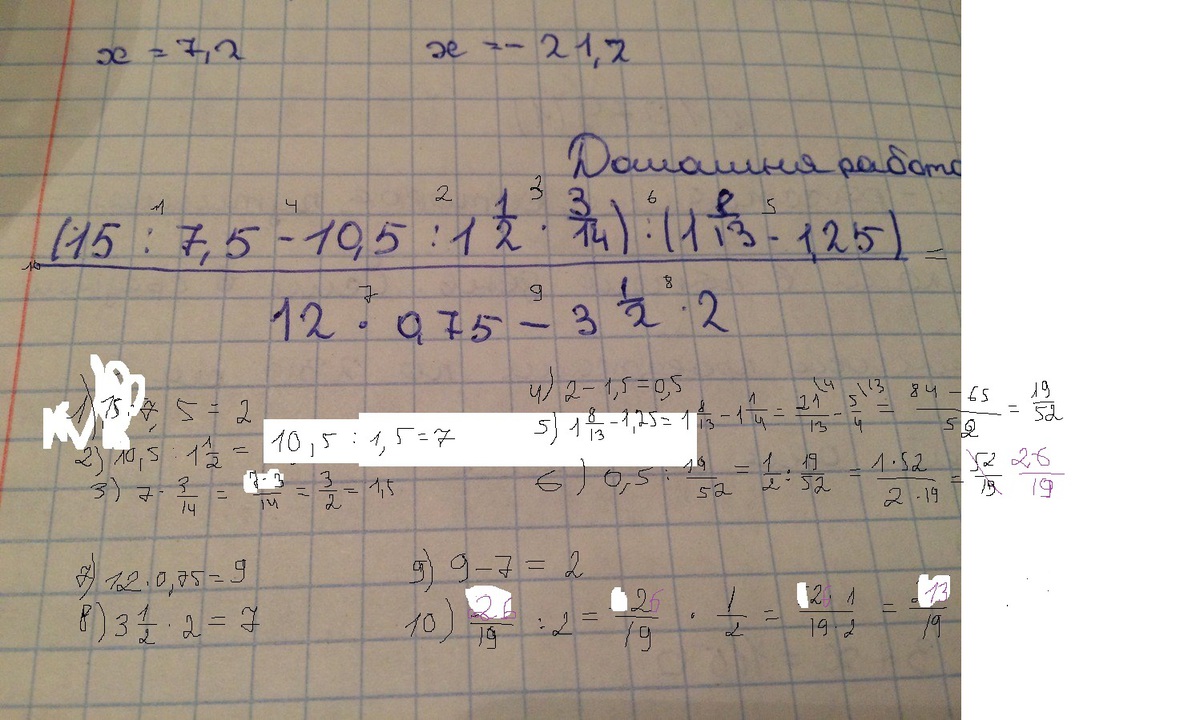 x = 7,2
x = - 21,2
Домашня работа
1 4 2 3 6 5
(15 : 7,5 - 10,5 : 1 1/2 · 3/14) : (1 8/13 - 1,25) =
10
7 9 8
12 · 0,75 - 3 1/2 · 2
1) 15 : 7,5 = 2
2) 10,5 : 1 1/2 = 10,5 : 1,5 = 7
3) 7 · 3/14 = 7·3/14 = 3/2 = 1,5
4) 2 - 1,5 = 0,5
5) 1 8/13 - 1,25 = 1 8/13 - 1 1/4 = 21/13 \4 - 5/4 \13 = 84 - 65/52 = 19/52
6) 0,5 : 19/52 = 1/2 : 19/52 = 1·52/2·19 = 52/19 26/19
7) 12 · 0,75 = 9
8) 3 1/2 · 2 = 7
9) 9 - 7 = 2
10) 26/19 : 2 = 26/19 · 1/2 = 26·1/19·2 = 13/19